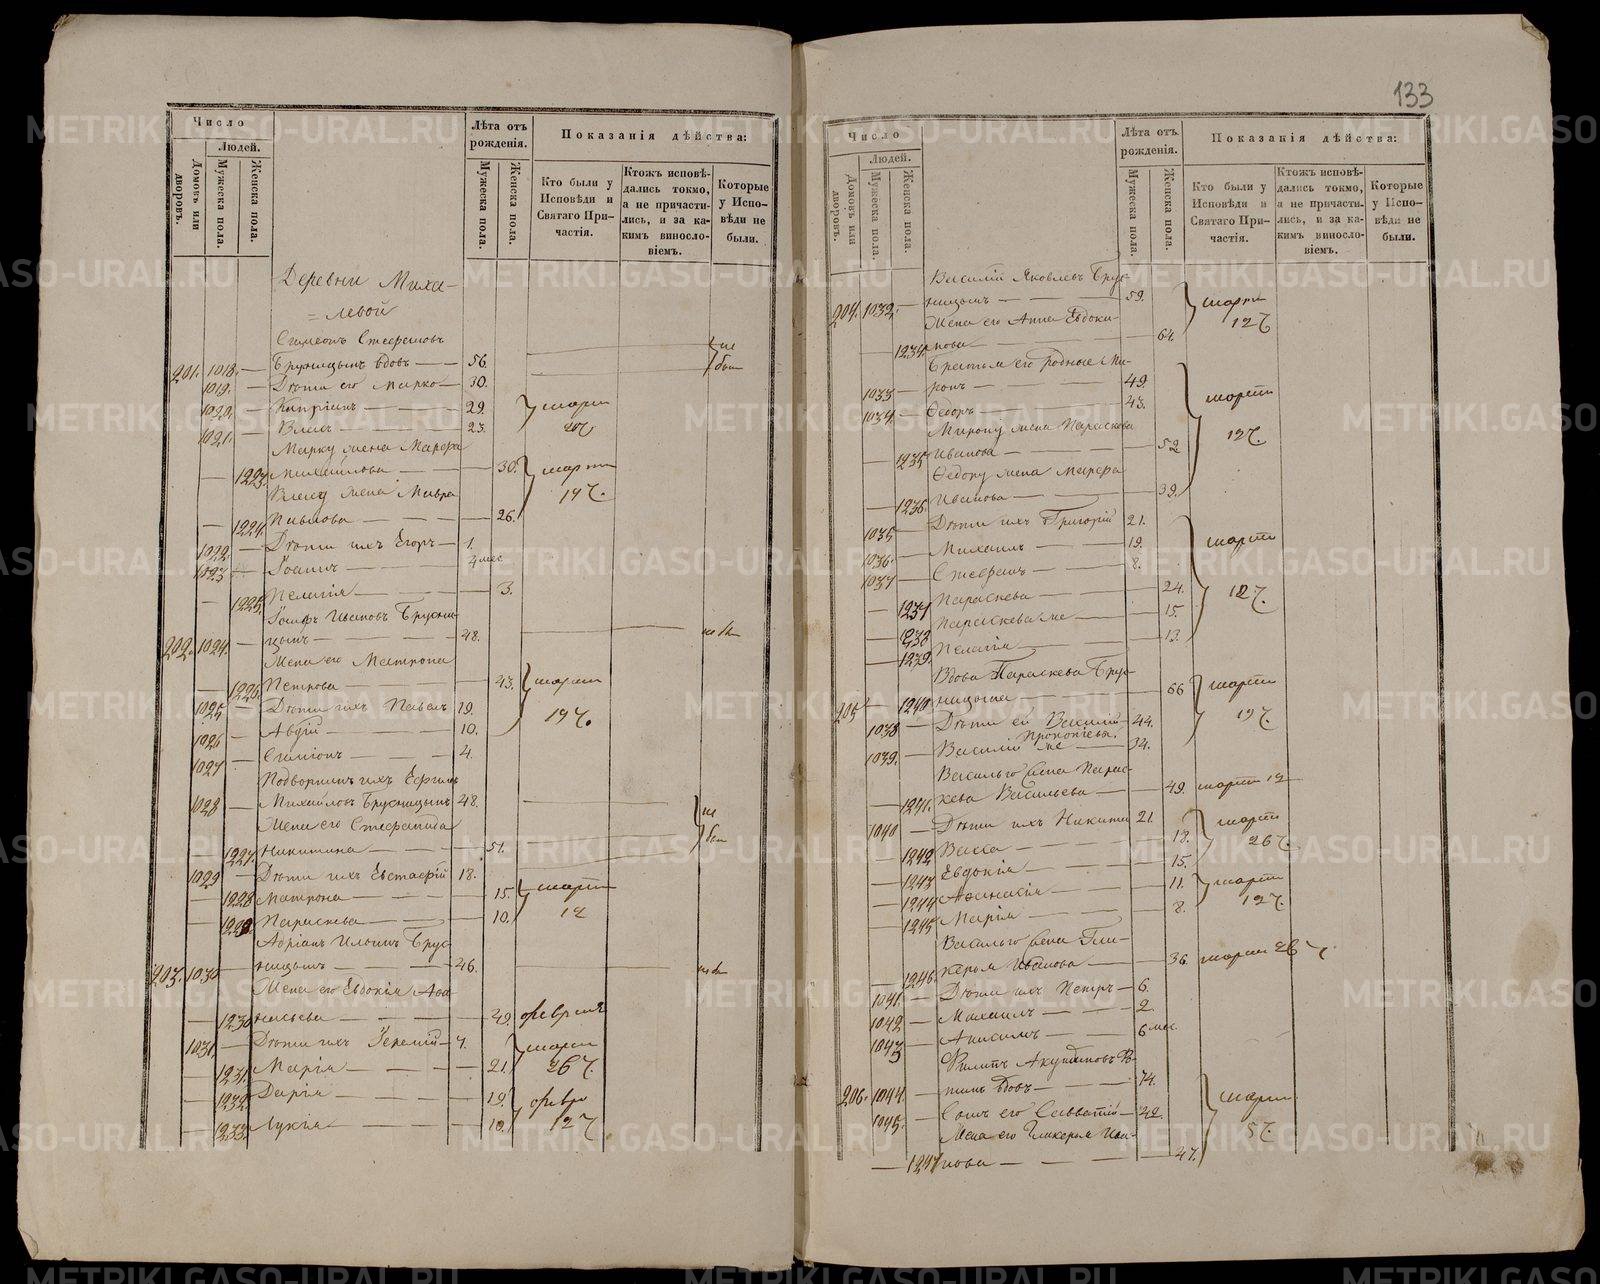 133
Число
Людей.
Домовъ или дворовъ.
Мужеска пола.
Женска пола.
Лѣта отъ рожденія.
Мужеска пола.
Женска пола.
Показанія дѣйства:
Кто были у Исповѣди и Святаго Причастія.
Ктожъ исповѣдались токмо, а не причастились, и за какимъ винословіемъ.
Которые у Исповѣди не были.
Деревни Миха-
левой
Симеонъ Стефановъ
201. 1018. Брусницынъ вдовъ 56. не
1019. Дѣти его Марко 30. был
1020. Кипріанъ 29. марта
1021. 23.
Марку жена Марфа
1223. Михайлова 30. марта
жена Мавра 19
1224. Павлова 26.
1022. Дѣти ихъ Егоръ 1.
1023 Іоаннъ 4 мес
1225. Пелагія 3.
Іосифъ Ивановъ Брусни-
202. 1024. цынъ 48.
Жена его Матрона
1226. Петрова 43. марта
1025. Дѣти ихъ Павелъ 19. 19
1026 Авдій 10.
1027 Симеонъ 4.
Подворникъ ихъ Ефимъ
1028 Михайловъ Брусницынъ 48. не
Жена его Стефанида
1227. Никитина 51.
1029 Дѣти ихъ Евстафій 18.
1228 Матрона 15. марта
1229. Параскева 10. 12
Адріанъ Ильинъ Брус-
203. 1030 ницынъ 46.
Жена его Евдокія Афа-
1230 насьева 49. февраля
1031. Дѣти ихъ Іеремій 7. марта
1231. Марія 21. 26
1232. Дарія 19. февра
1233. Лукія 10. 12
Число
Людей.
Домовъ или дворовъ.
Мужеска пола.
Женска пола.
Лѣта отъ рожденія.
Мужеска пола.
Женска пола.
Показанія дѣйства:
Кто были у Исповѣди и Святаго Причастія.
Ктожъ исповѣдались токмо, а не причастились, и за какимъ винословіемъ.
Которые у Исповѣди не были.
Василій Яковлевъ Брус-
204. 1032. ницынъ 59. марта
Жена его Анна Евдоки- 12
1234. мова 64.
Братья его родные Ми-
1033 ронъ 49. марта
1034. Ѳедоръ 43.
Мирону жена Параскева 12
1235 Иванова 52
Ѳедору жена Марфа
1236. Иванова 39.
1035 Дѣти ихъ Григорій 21.
1036. Михаилъ 19. марта
1037 Стефанъ 8.
1237 Параскева 24. 12
1238 Параскева же 15.
1239. Пелагія 13.
Вдова Параскева Брус-
205 1240 ницына 66 марта
1038 Дѣти ея Василій 44. 19
Прокопіевы.
1039. Василій же 34.
Василью жена Парас-
1241. кева Васильева 49. марта 12
1040 Дѣти ихъ Никита 21. марта
1242 Васса 18. 26
1243 Евдокія 15.
1244 Афанасія 11. марта
1245 Марія 8. 12
Василью жена Гли-
1246. керья Иванова 36. марта 26
1041. Дѣти ихъ Петръ 6.
1042 Михаилъ 2.
1043 Анисимъ 6 мес
Филипъ
206. 1044. вдовъ 74. марта
1045. Сынъ его Савватій 42. 5
Жена его Гликерья Ива-
1247 нова 47.
METRIKI.GASO-URAL.RU